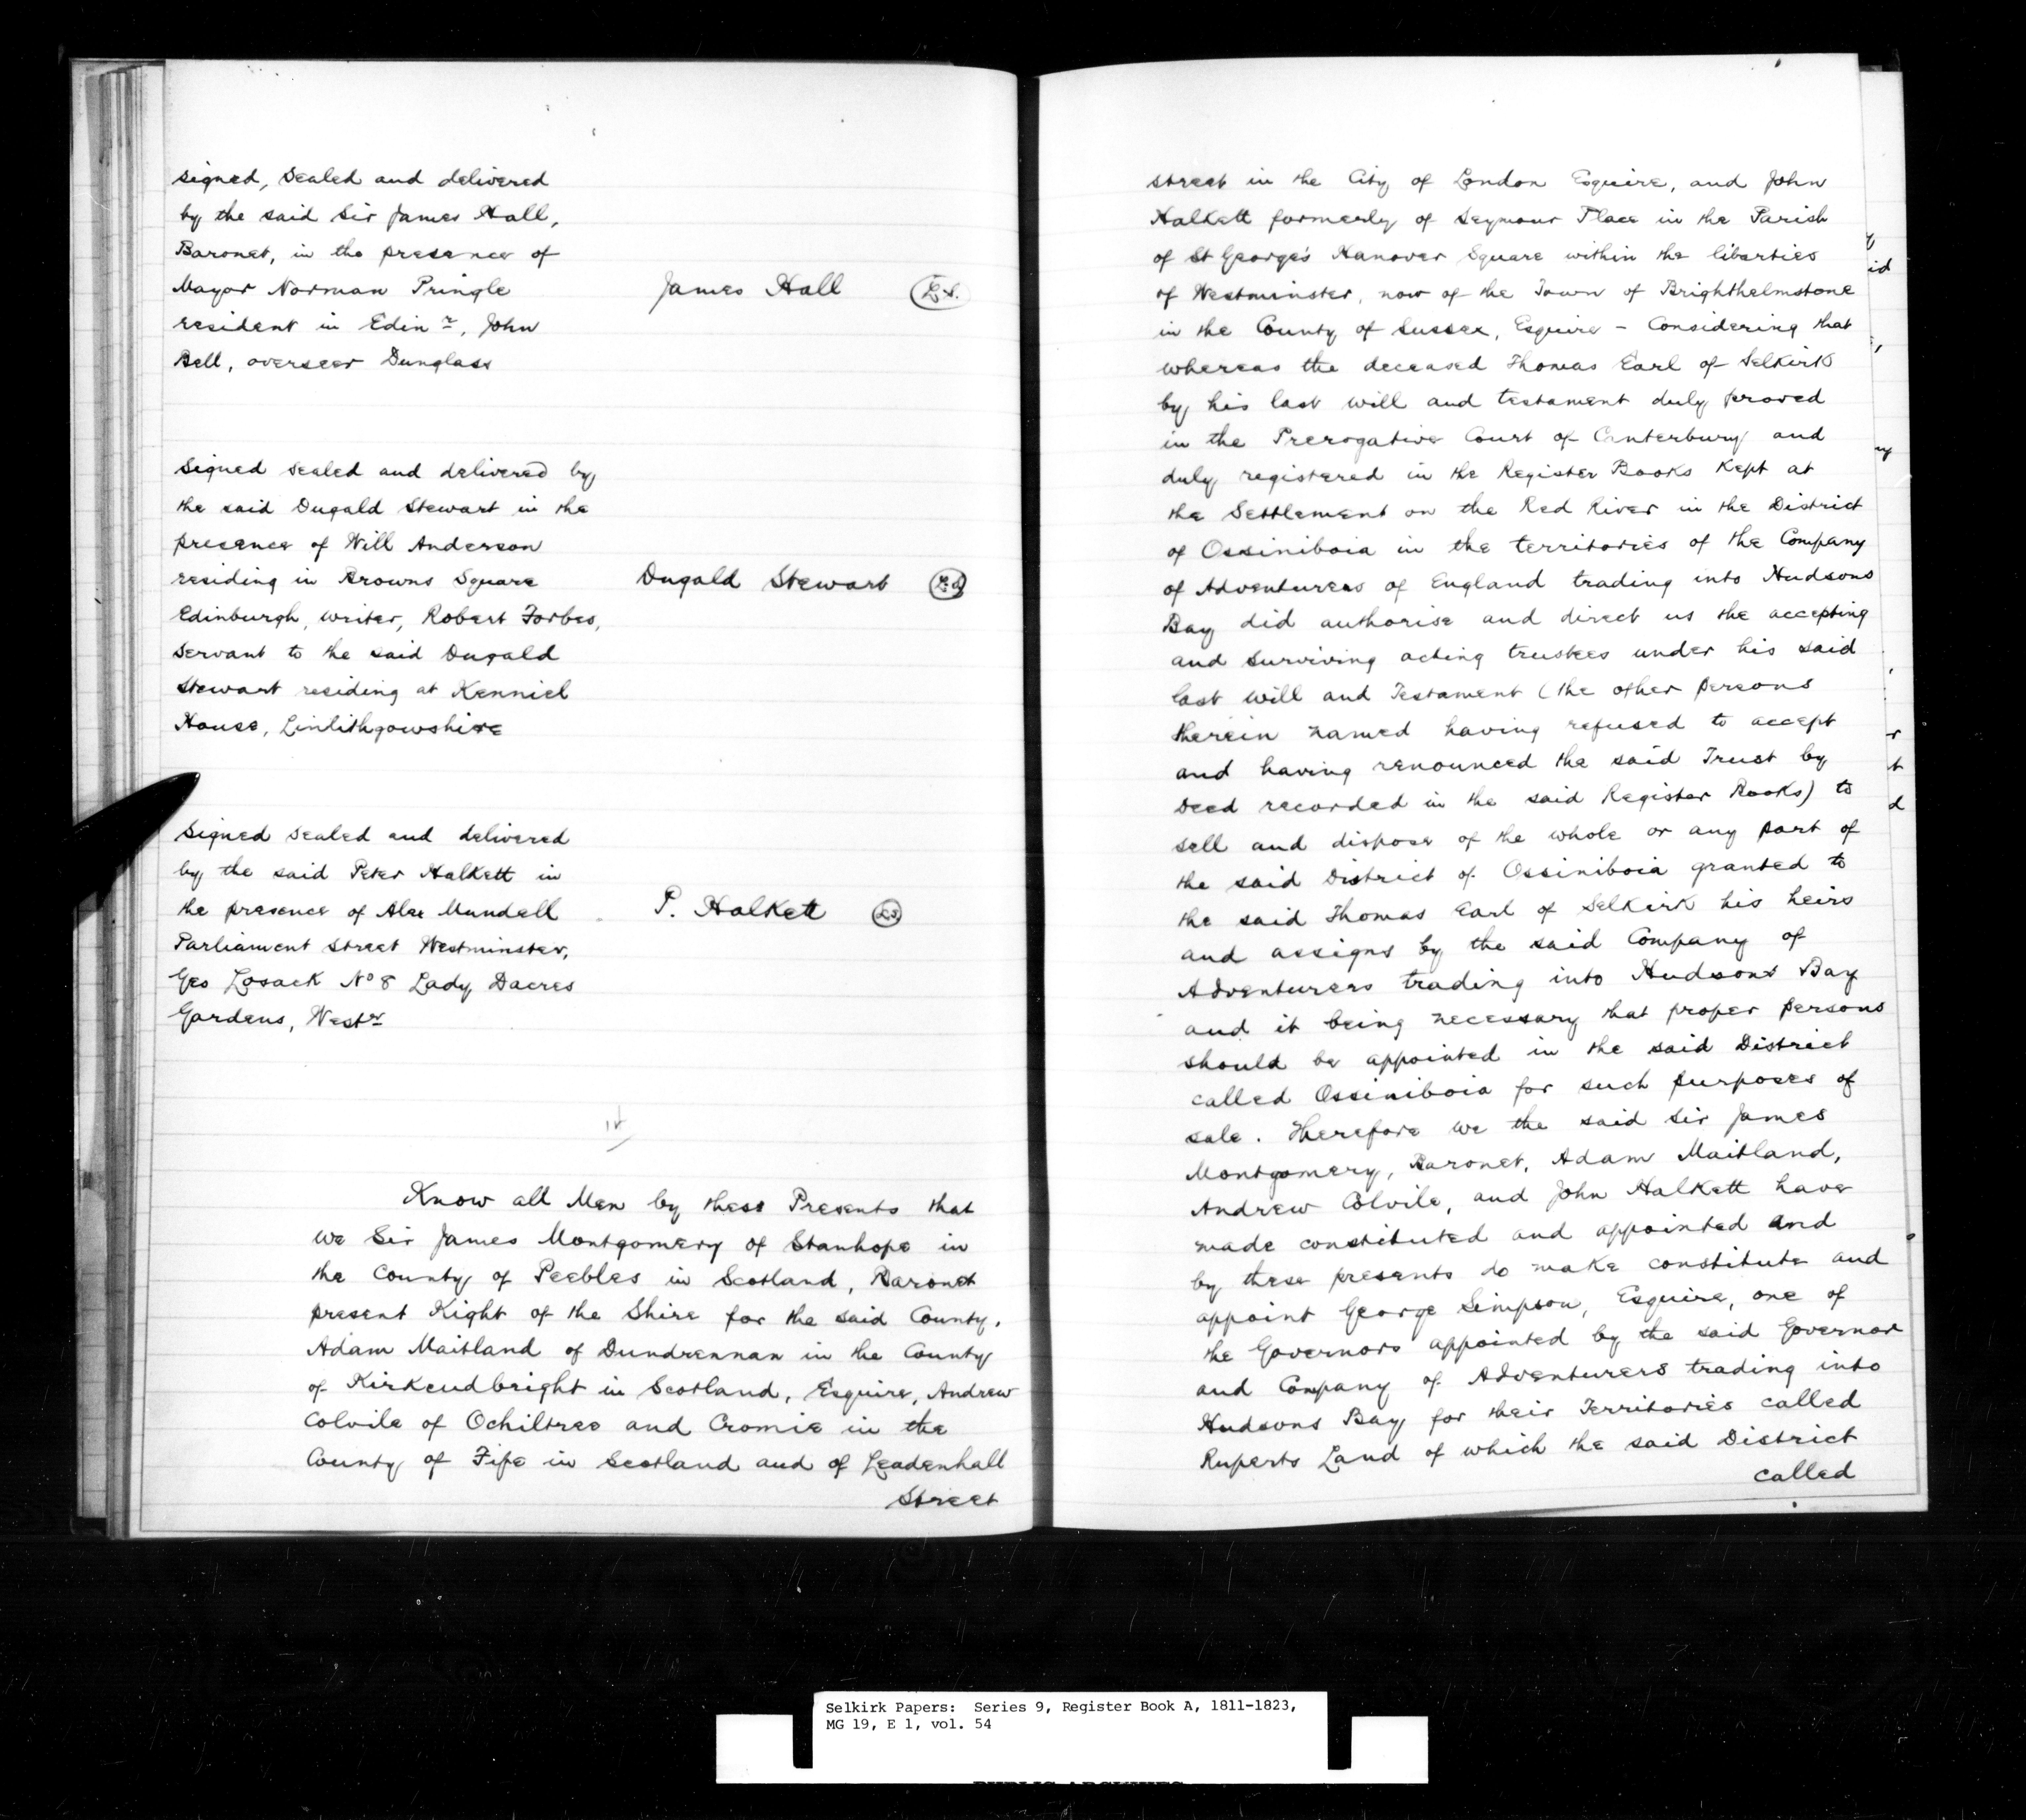 signed, sealed and delivered
by the said Sir James Hall,
Baronet, in the presence of
Mayor Norman Pringle
resident in Edinr, John
Bell, overseer Dunglass
James Hall L.S.
Signed sealed and delivered by
the said Dugald Stewart in the
presence of Will Anderson
residing in Browns Square
Edinburgh, writer, Robert Forbes,
servant to the said Dugald
Stewart residing at Kenniel
House, Linlithgowshire
Dugald Stewart L.S.
Signed sealed and delivered
by the said Peter Halkett in
the presence of Alex Mundell
Parliament Street Westminster,
Geo Losack No 8 Lady Dacres
Gardens, Westr
P. Halkett L.S.
Know all Men by these Presents that
we Sir James Montgomery of Stanhope in
the County of Peebles in Scotland, Baronet
present Kight of the Shire for the said County,
Adam Maitland of Dundrennan in the County
of Kirkcudbright in Scotland, Esquire, Andrew
Colvile of Ochiltree and Cromie in the
County of Fife in Scotland and of Leadenhall
Street
street in the City of London Esquire, and John
Halkett formerly of Seymour Place in the Parish
of St George's Hanover Square within the liberties
of Westminster, now of the Town of Brighthelmstone
in the County of Sussex, Esquire - Considering that
whereas the deceased Thomas Earl of Selkirk
by his last will and testament duly proved
in the Prerogative Court of Canterbury and
duly registered in the Register Books Kept at
the Settlement on the Red River in the District
of Ossiniboia in the territories of the Company
of Adventurers of England trading into Hudsons
Bay did authorise and direct us the accepting
and surviving acting trustees under his said
last will and Testament (the other persons
therein named having refused to accept
and having renounced the said Trust by
Deed recorded in the said Register Books) to
sell and dispose of the whole or any part of
the said District of Ossiniboia granted to
the said Thomas Earl of Selkirk his heirs
and assigns by the said Company of
Adventurers trading into Hudsons Bay
and it being necessary that proper persons
should be appointed in the said District
called Ossiniboia for such purposes of
sale. Therefore we the said Sir James
Montgomery, Baronet, Adam Maitland,
Andrew Colvile, and John Halkett have
made constituted and appointed and
by these presents do make constitute and
appoint George Simpson, Esquire, one of
the Governors appointed by the said Governor
and Company of Adventurers trading into
Hudsons Bay for their Territories called
Ruperts Land of which the said District
called
Selkirk Papers: Series 9, Register Book A, 1811-1823,
MG 19, E 1, vol. 54